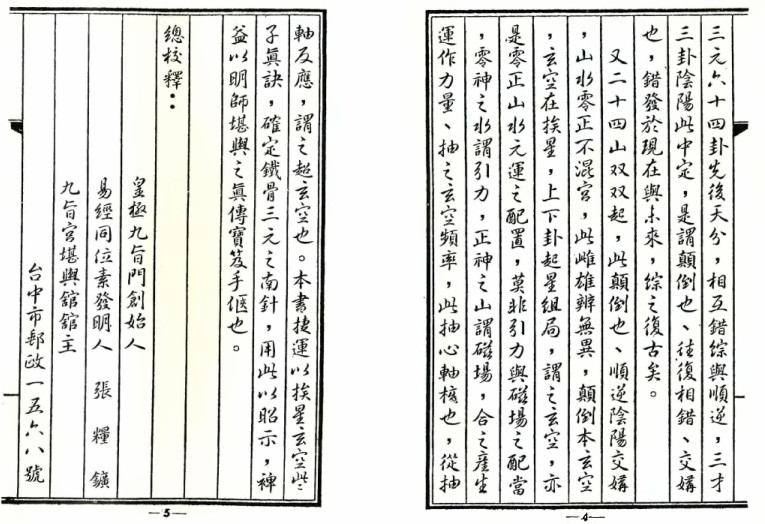 三元六十四卦先後天分，相互錯綜與順逆，三才
三卦陰陽此中定，是謂顛倒也、往復相錯、交媾
也，錯發於現在與未來，綜之復古矣。
又二十四山双双起，此顛倒也、順逆陰陽交媾
，山水零正不混宮，此雌雄辨無異，顛倒本玄空
，玄空在挨星，上下卦起星組局，謂之玄空，亦
是零正山水元運之配置，莫非引力與磁場之配當
，零神之水謂引力，正神之山謂磁場，合之產生
運作力量、抽之玄空頻率，此抽心軸核也，從抽
—4—
軸反應，謂之超玄空也。本書捷運以挨星玄空些
子眞訣，確定鐵骨三元之南針，用此以昭示，裨
益以明師堪輿之眞傳寶笈手
也。
總校釋：
皇極九旨門創始人
易經同位素發明人 張 糧 鑛
九旨宮堪輿舘舘主
台中市郵政一五六八號
—5—